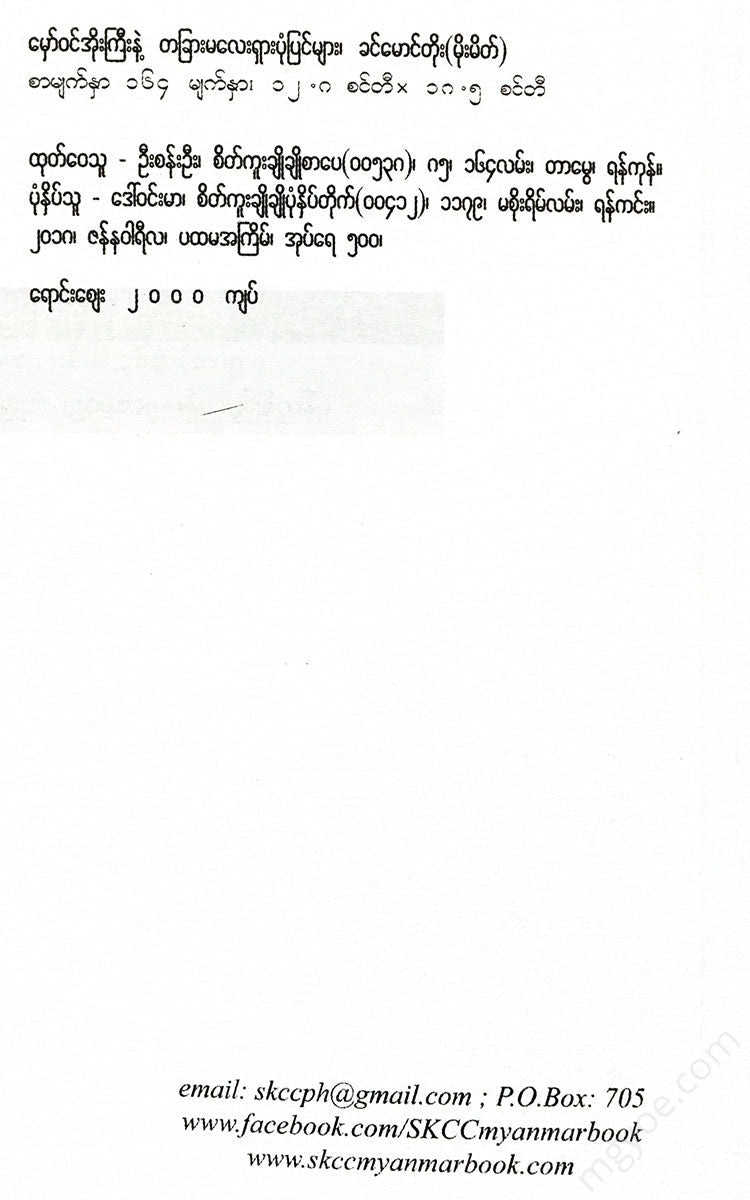 မှော်ဝင်အိုးကြီးနဲ့ တခြားမလေးရှားပုံပြင်များ၊ ခင်မောင်တိုး(မိုးမိတ်)
စာမျက်နှာ ၁၆၄ မျက်နှာ၊ ၁၂.၈ စင်တီ× ၁၈.၅ စင်တီ
ထုတ်ဝေသူ - ဦးစန်းဦး၊ စိတ်ကူးချိုချိုစာပေ(၀၀၅၃၈)၊ ၈၅၊ ၁၆၄လမ်း၊ တာမွေ၊ ရန်ကုန်။
ပုံနှိပ်သူ - ဒေါ်ဝင်းမာ၊ စိတ်ကူးချိုချိုပုံနှိပ်တိုက်(၀၀၄၁၂)၊ ၁၁၇၉၊ မစိုးရိမ်လမ်း၊ ရန်ကင်း။
၂၀၁၈၊ ဇန်နဝါရီလ၊ ပထမအကြိမ်၊ အုပ်ရေ ၅၀၀၊
ရောင်းဈေး ၂ ၀ ၀ ၀ ကျပ်
email: skccph@gmail.com ; P.O.Box: 705
www.facebook.com/SKCCmyanmarbook
www.skccmyanmarbook.com
mgyoe.com